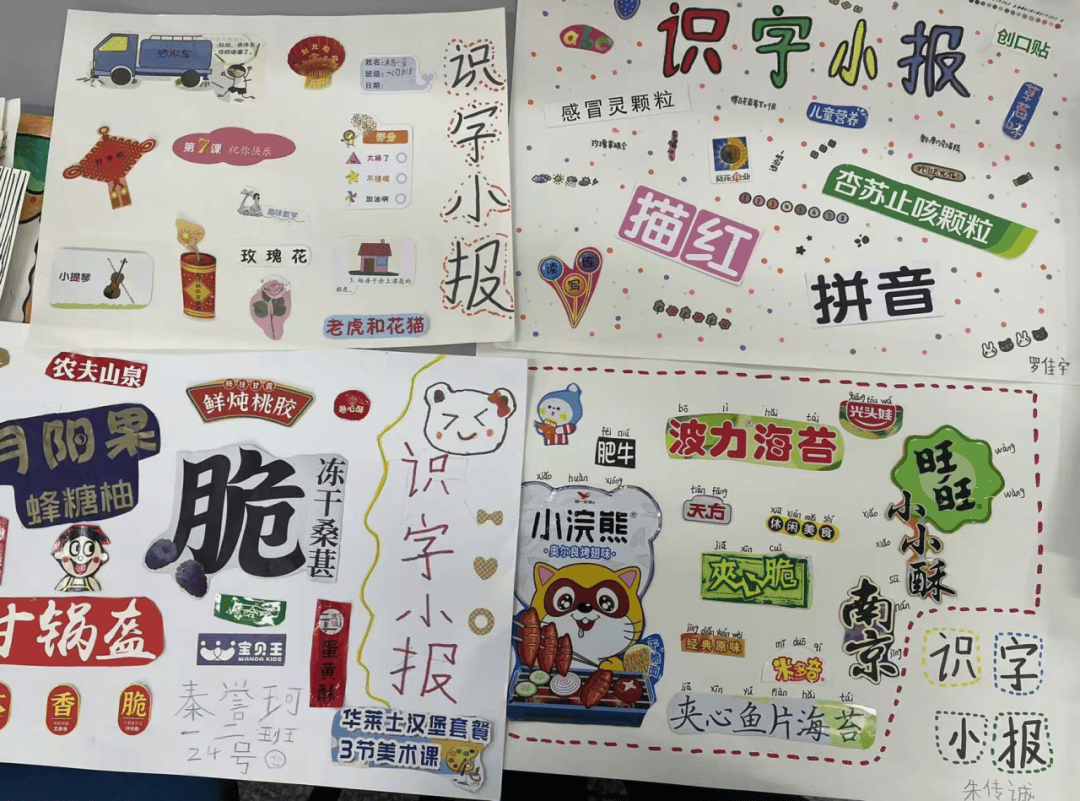 洒水车
识字小报
姓名:
班级:
日期:
第7课 祝你快乐
得分
太棒了
不错哦
加油哟
趣味数学
小提琴
玫瑰花
3. 给房子涂上漂亮的
颜色。
老虎和花猫
abc
识字小报
创口贴
感冒灵颗粒
儿童营养
草莓味
杏苏止咳颗粒
描红
读
练
写
拼音
罗佳宇
农夫山泉
杨枝甘露
鲜炖桃胶
月阳果
蜂糖柚
脆
冻干桑葚
识字小报
寸锅盔
宝贝王
WANDA KIDS
蛋黄酥
香
脆
秦誉珂
一 班
24号
华莱士汉堡套餐
3节美术课
bō lì hǎi tái
波力海苔
guāng tóu wá
光头娃
féi niú
肥牛
xiǎo huàn xióng
小浣熊
奥尔良烤翅味
tiān fāng
天方
xiū xián měi shí
休闲美食
wàng
旺旺
wàng
xiǎo
小小酥
xiǎo
sū
jiā xīn cuì
夹心脆
nán
南京
jīng
jīng diǎn yuán wèi
经典原味
mǐ duō qí
米多奇
jiā xīn yú piàn hǎi tái
夹心鱼片海苔
识字
小报
朱传诚